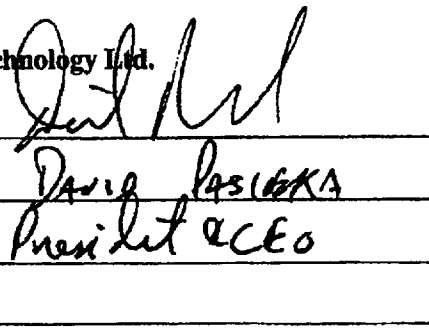 chnology Ltd.
David Pasieka
President & CEO